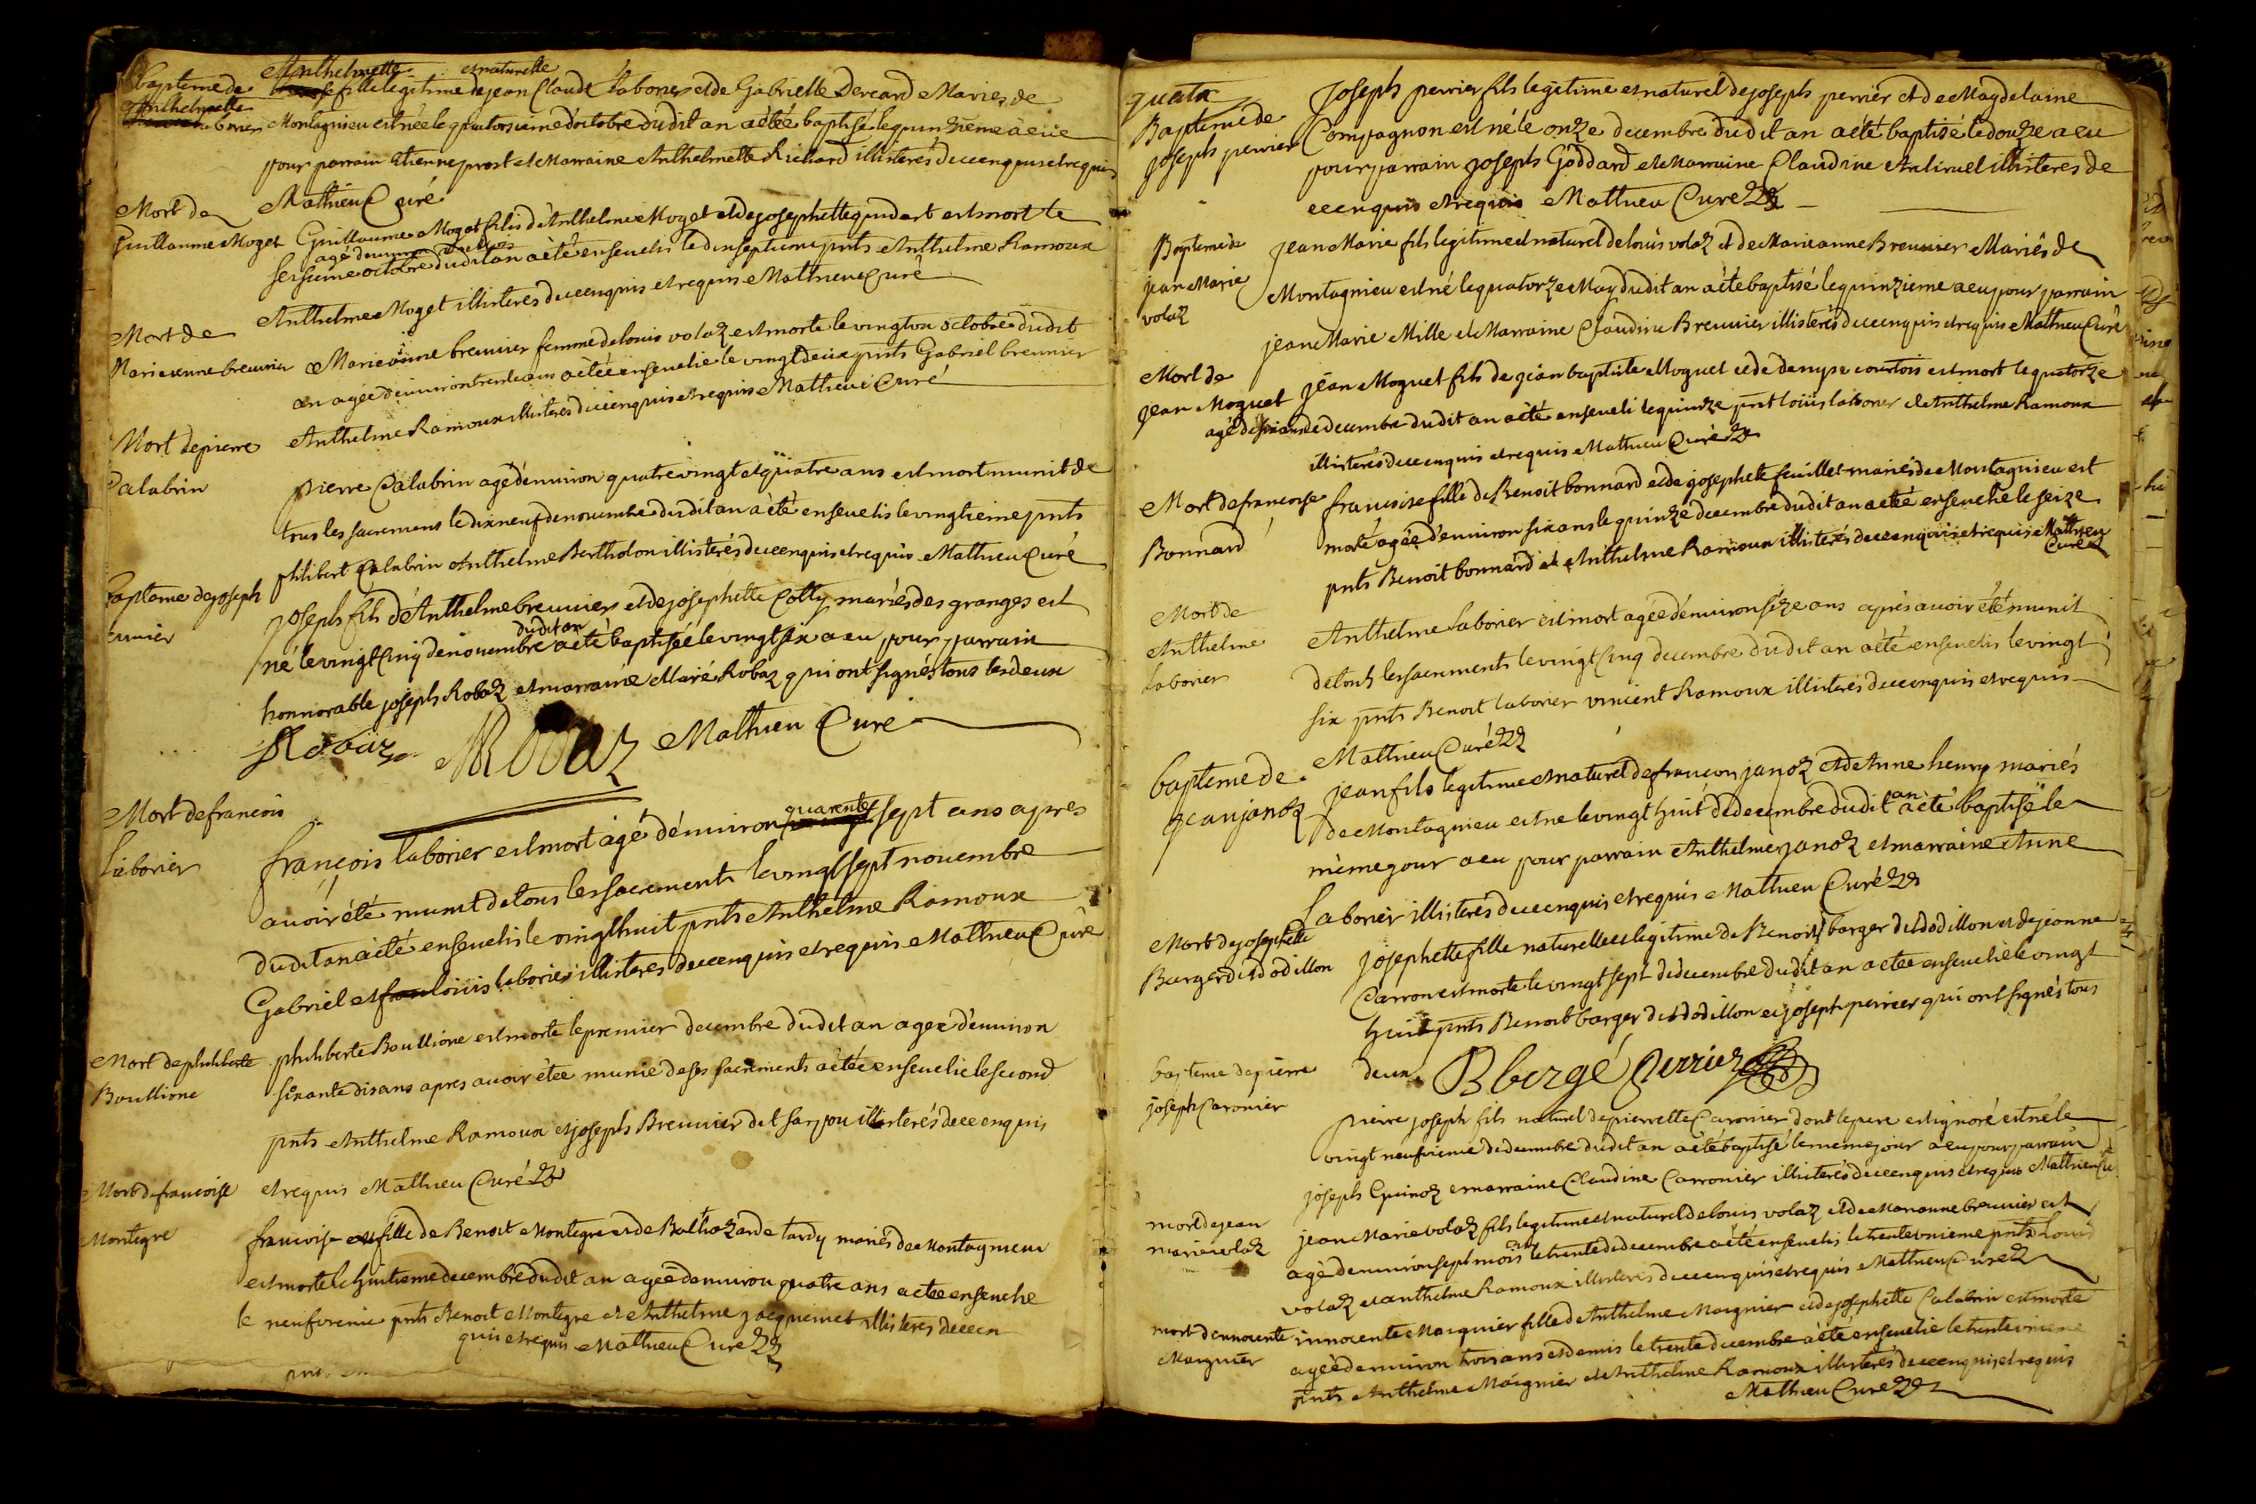 baptême de Anthelmette et naturelle
Anthelmette fille legitime de jean Claude laborier et de Gabrielle Mariez de
laborier Montagnieu est née le quatorsieme d'octobre dudit an a êtéé baptisé le quinzieme a eüe
pour parrain etienne prost et Marraine Anthelmette Richard illisterés de ce enquis et requis
Mathieu Curé
Mort de
Guillaume Moget Guillaume Moget fils d'Anthelme Moget et de josephette est mort le
agé d'environ
seisieme octobre dudit an a êté enseuelis le dixseptieme pnts Anthelme Ramoux
Anthelme Moget illisterés de ce enquis et requis Mathieu Curé
Mort de
Marieanne breunier Marieanne breunier femme de louis volaz est morte le vingt un octobre dudit
an agée d'enuiron trente ans a êtéé enseuelie le vingt deux pnts Gabriel breunier
Anthelme Ramoux illisterés de ce enquis et requis Mathieu Curé
Mort de pierre
Calabrin pierre Calabrin agé d'enuiron quatre vingt et quatre ans est mort munit de
tous les sacremens le dix neuf de nouembre dudit an a êté enseuelis le vingtieme pnts
philibert Calabrin Anthelme Bertholon illisterés de ce enquis et requis Mathieu Curé
baptême de joseph
joseph fils d'Anthelme breunier et de josephette Cotty mariés des granges est
dudit an
né le vingt cinq de nouembre a êté baptisée le vingt six a eu pour parrain
honnorable joseph Robaz et marraine Marie Robaz qui ont signés tous les deux
Robaz M Robaz Mathieu Curé
Mort de francois
laborier
quarente
françois laborier est mort agé d'enuiron sept ans apres
auoir êté munit de tous les sacrements le vingt sept nouembre
dudit an a êté enseuelis le vingt huit pnts Anthelme Ramoux
Gabriel et louis laborier illisterés de ce enquis et requis Mathieu Curé
Mort de philiberte
Boullione philiberte Boullione est morte le premier decembre dudit an agée d'enuiron
sixante dix ans apres auoir êtée munie de ses sacrements a êtée enseuelie le second
pnts Anthelme Ramoux et joseph Breunier dit illisterés de ce enquis
et requis Mathieu Curé
Mort de francoise
Montegre francoise fille de Benoit Montegre et de Balthazarde tardy mariés de Montagnieu
est morte le huitieme decembre dudit an agée d'enuiron quatre ans a etee enseuelie
le neufvieme pnts Benoit Montegre et Anthelme jacqueinet illisterés de ce en
quis et requis Mathieu Curé
Baptême de
joseph perrier
joseph perrier fils legitime et naturel de joseph perrier et de Magdelaine
Compagnon est né le onze decembre dudit an a êté baptisé le douze a eu
pour parrain joseph Goddard et Marraine Claudine illisteres de
ce enquis et requis Mathieu Curé
Baptême de
jean Marie
volaz
jean Marie fils legitime et naturel de louis volaz et de Marieanne Breunier Mariés de
Montagnieu est né le quatorze May dudit an a êté baptisé le quinzieme a eu pour parrain
jean Marie Mille et Marraine Claudine Breunier illisterés de ce enquis et requis Mathieu Curé
Mort de
jean Moguet jean Moguet fils de jean baptiste Moguet et de denyse courtois est mort le quatorze
agé de six ans de decembre dudit an a êté enseueli le quinze pnts louis laborier et Anthelme Ramoux
illisterés de ce enquis et requis Mathieu Curé
Mort de francoise
Bonnard
francoise fille de Benoit bonnard et de josephete feuillet mariés de Montagnieu est
morte agée d'enuiron six ans le quinze decembre dudit an a êtéé enseuelie le seize
pnts Benoit bonnard et Anthelme Ramoux illisterés de ce enquis et requis Mathieu
Curé
Mort de
Anthelme
laborier
Anthelme laborier est mort agée d'enuiron seze ans aprés auoir êté munit
de touts les sacrements le vingt cinq decembre dudit an a êté enseuelis le vingt
six pnts Benoit laborier vincent Ramoux illisterés de ce enquis et requis
Mathieu Curé
baptême de
jean janoz
jean fils legitime et naturel de francois janoz et de Anne henry mariés
de Montagnieu est né le vingt huit de decembre dudit an a êté baptisé le
même jour a eu pour parrain Anthelme janoz et marraine Anne
Laborier illisterés de ce enquis et requis Mathieu Curé
Mort de josephette
Barger dit dodillon
josephette fille naturelle et legitime de Benoit barger dit dodillon et de jeanne
Carron est morte le vingt sept de decembre dudit an a etee enseuelie le vingt
huit pnts Benoit barger dit dodillon et joseph perrier qui ont signés tous
deux B bergé Perrier
baptême de pierre
joseph Caronier
pierre joseph fils naturel de pierrette Caronier dont le pere est ignoré est né le
vingt neufvieme de decembre dudit an a êté baptisé le meme jour a eu pour parrain
joseph Guinoz et marraine Claudine Carronier illisterés de ce enquis et requis Mathieu Cu
mort de jean
marie volaz
jean Marie volaz fils legitime et naturel de louis volaz et de Marianne breunier est
agé d'enuiron sept mois le trente de decembre a êté enseuelis le trente unieme pnts Louis
volaz et anthelme Ramoux illisterés de ce enquis et requis Mathieu Curé
mort d'ennocente
Moignier
innocente Moignier fille d'Anthelme Moignier et de josephette Calabrin est morte
agée d'enuiron trois ans et demis le trente decembre a êté enseuelie le trente unieme
pnts Anthelme Moignier et Anthelme Ramoux illisterés de ce enquis et requis
Mathieu Curé